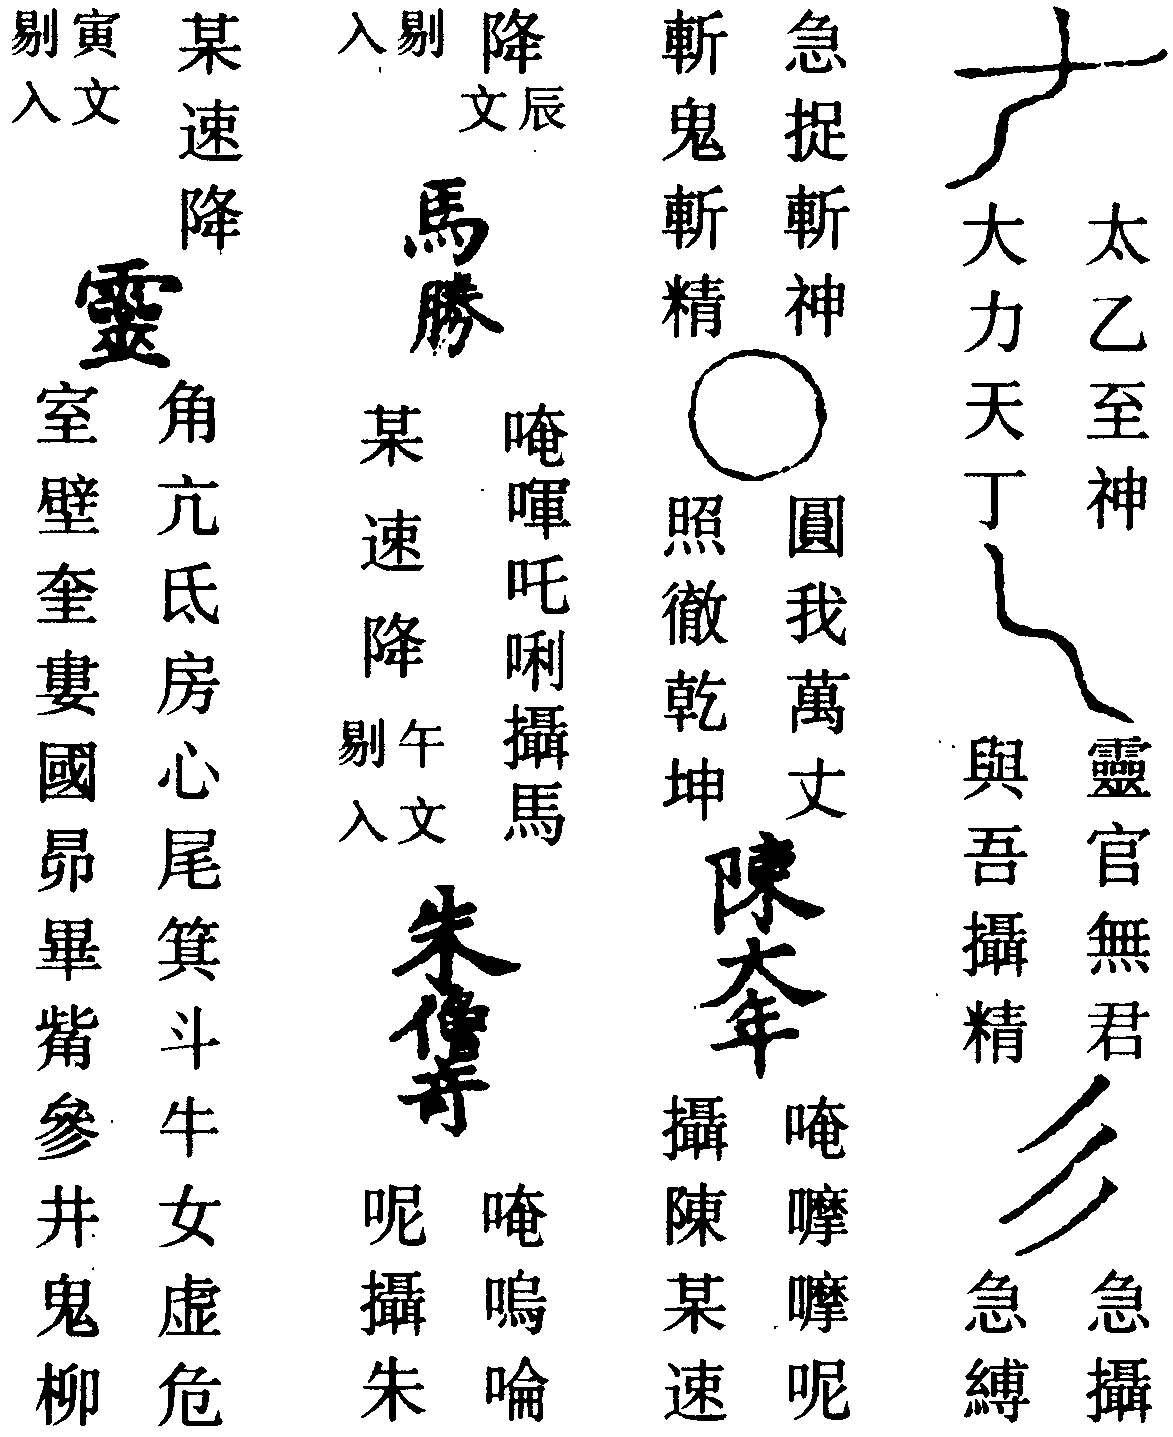 太乙至神
大力天丁
靈官無君
與吾攝精
急攝
急縛
急捉斬神
斬鬼斬精
圓我萬丈
照徹乾坤
陳大年
唵嚤嚤呢
攝陳某速
降
辰文
剔入
馬勝
唵喗吒唎攝馬
某速降
午文
剔入
朱僧奇
唵嗚㖮
呢攝朱
某速降
寅文
剔入
靈
角亢氐房心尾箕斗牛女虚危
室壁奎婁國昴畢觜參井鬼柳